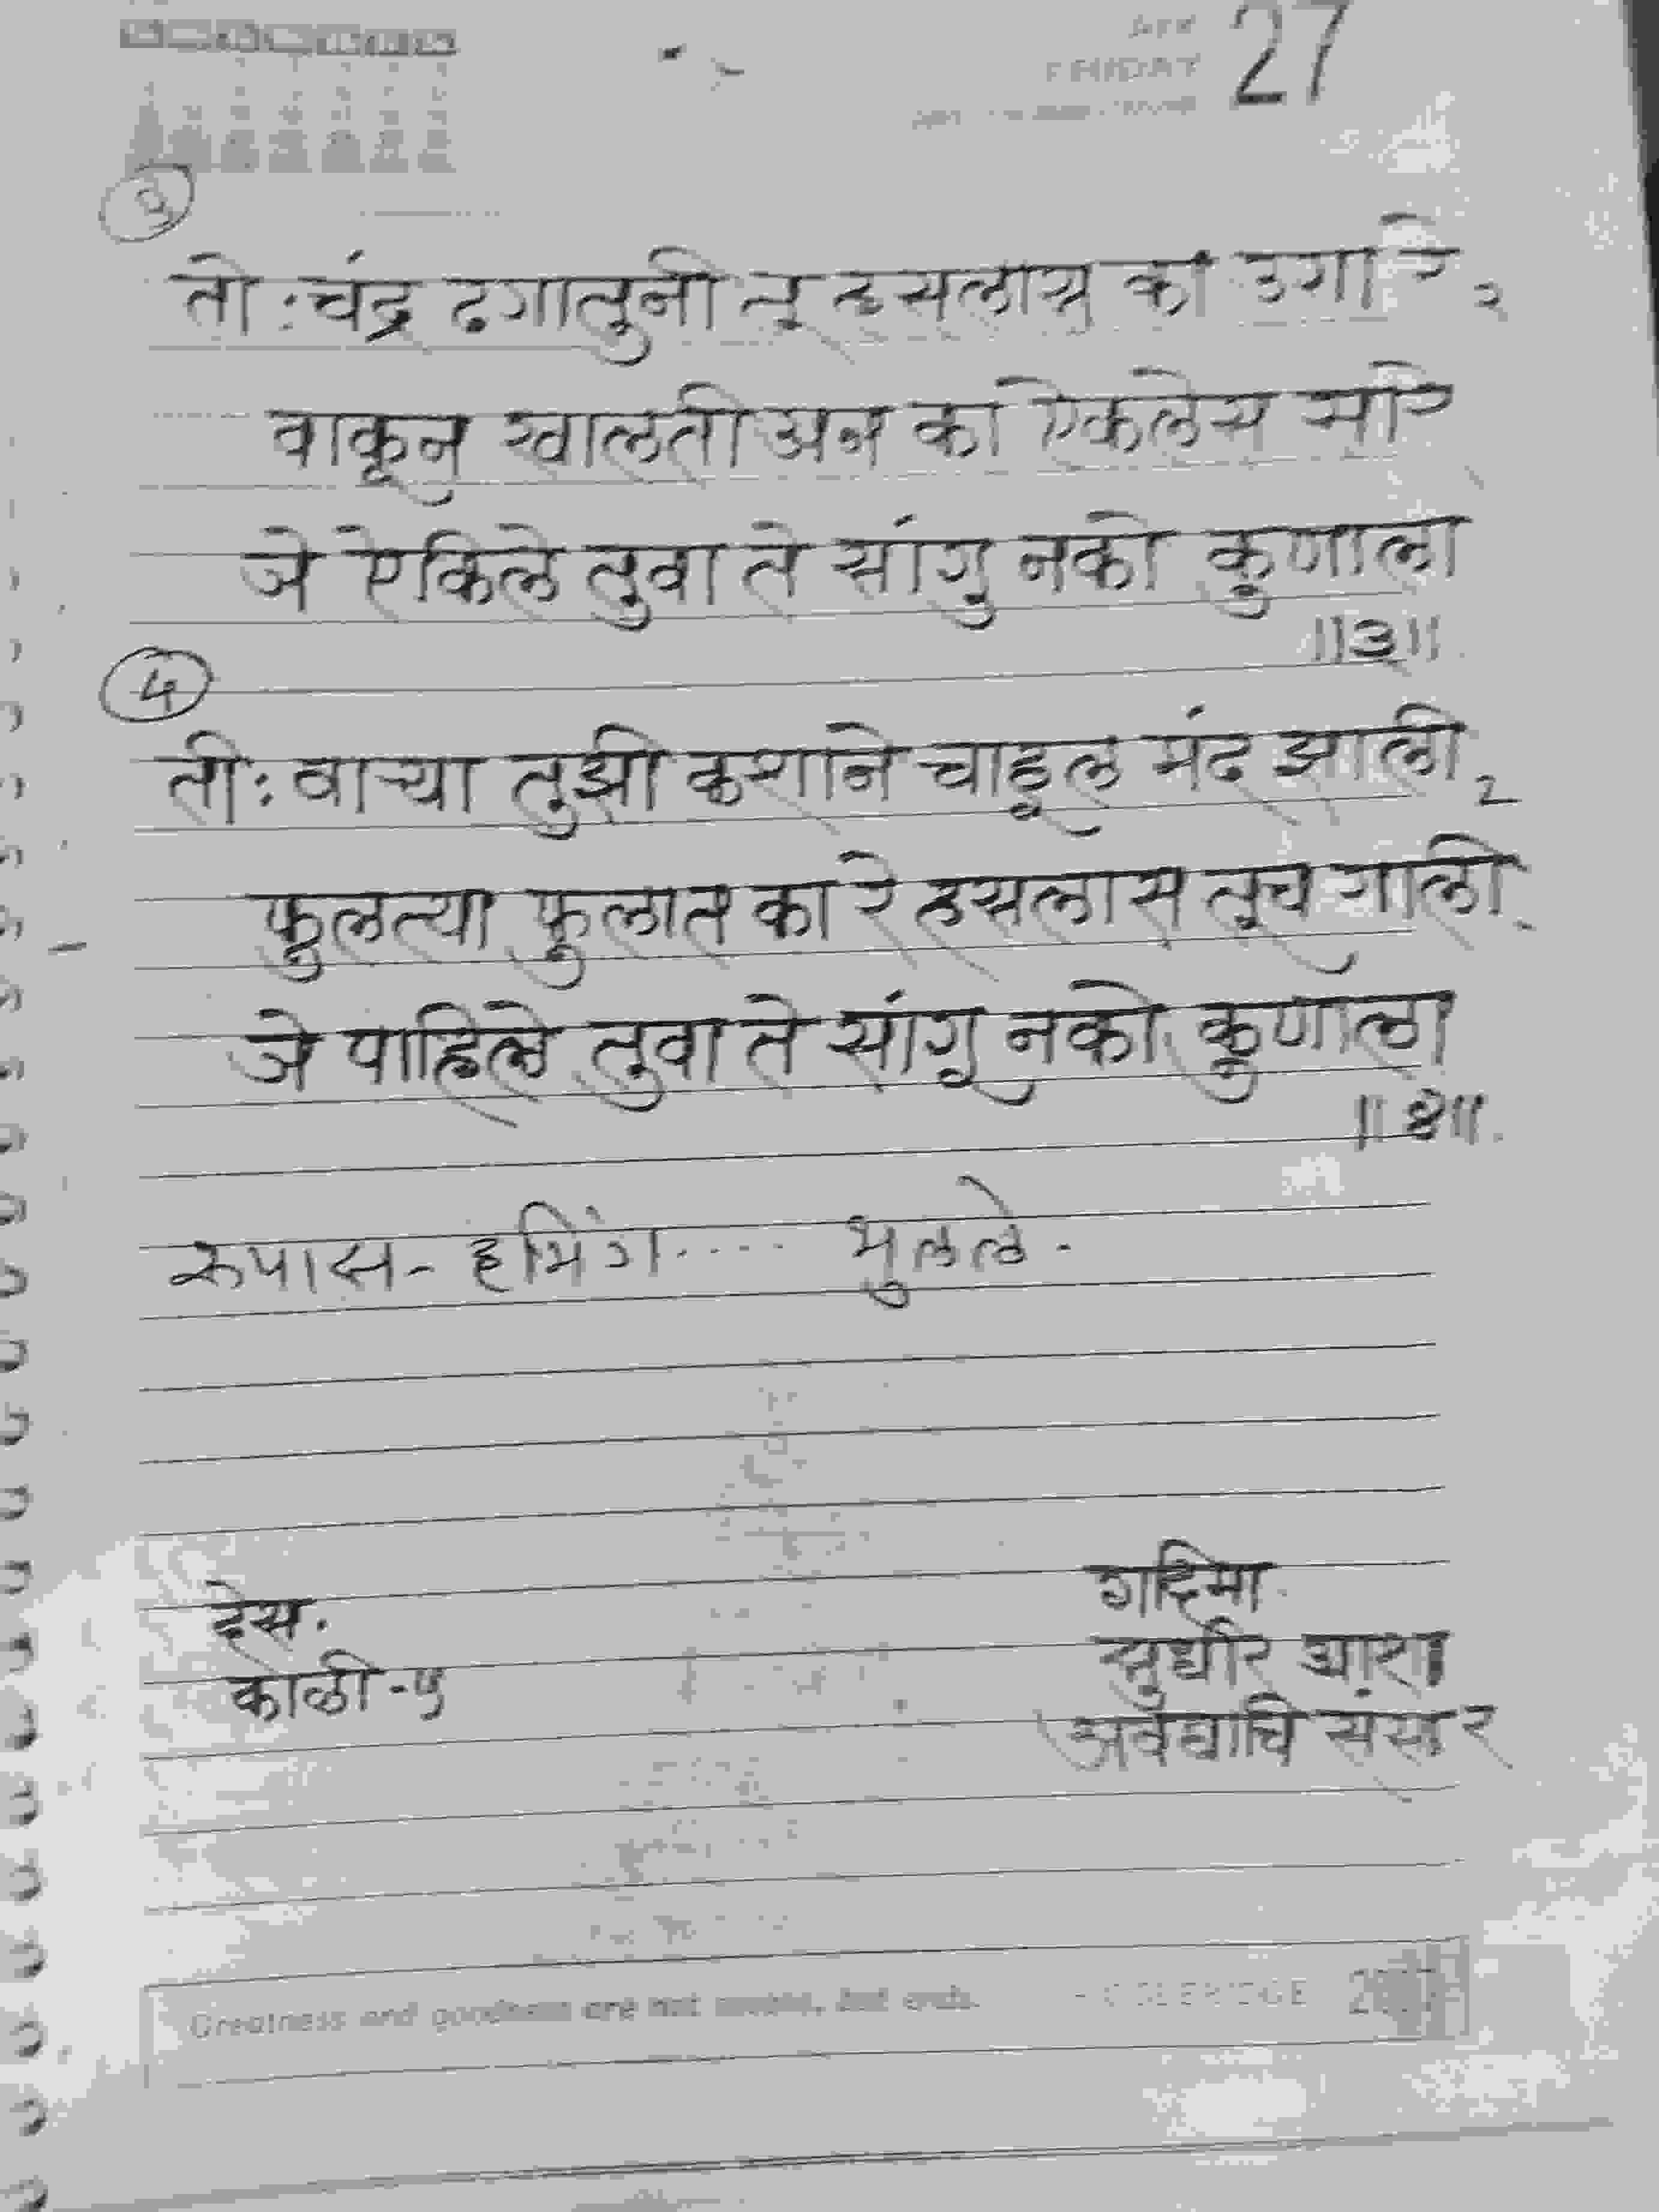 27
FRIDAY
५
तो : चंद्र ढगातुनी तू हसलास का उगा रे २
वाकून खालती अन का ऐकलेस सारे
जे ऐकिले तुवा ते सांगु नको कुणाला
॥३॥
4
ती : वाऱ्या तुझी कशाने चाहूल मंद झाली 2
फुलत्या फुलात का रे हसलास तूच गाली.
जे पाहिले तुवा ते सांगु नको कुणाला
॥४॥.
रूपास - हमिंग .... भुलले.
देस.
काळी - ५
गदिमा
सुधीर आशा
अवघाचि संसार
Greatness and goodness are not means, but ends. - COLERIDGE